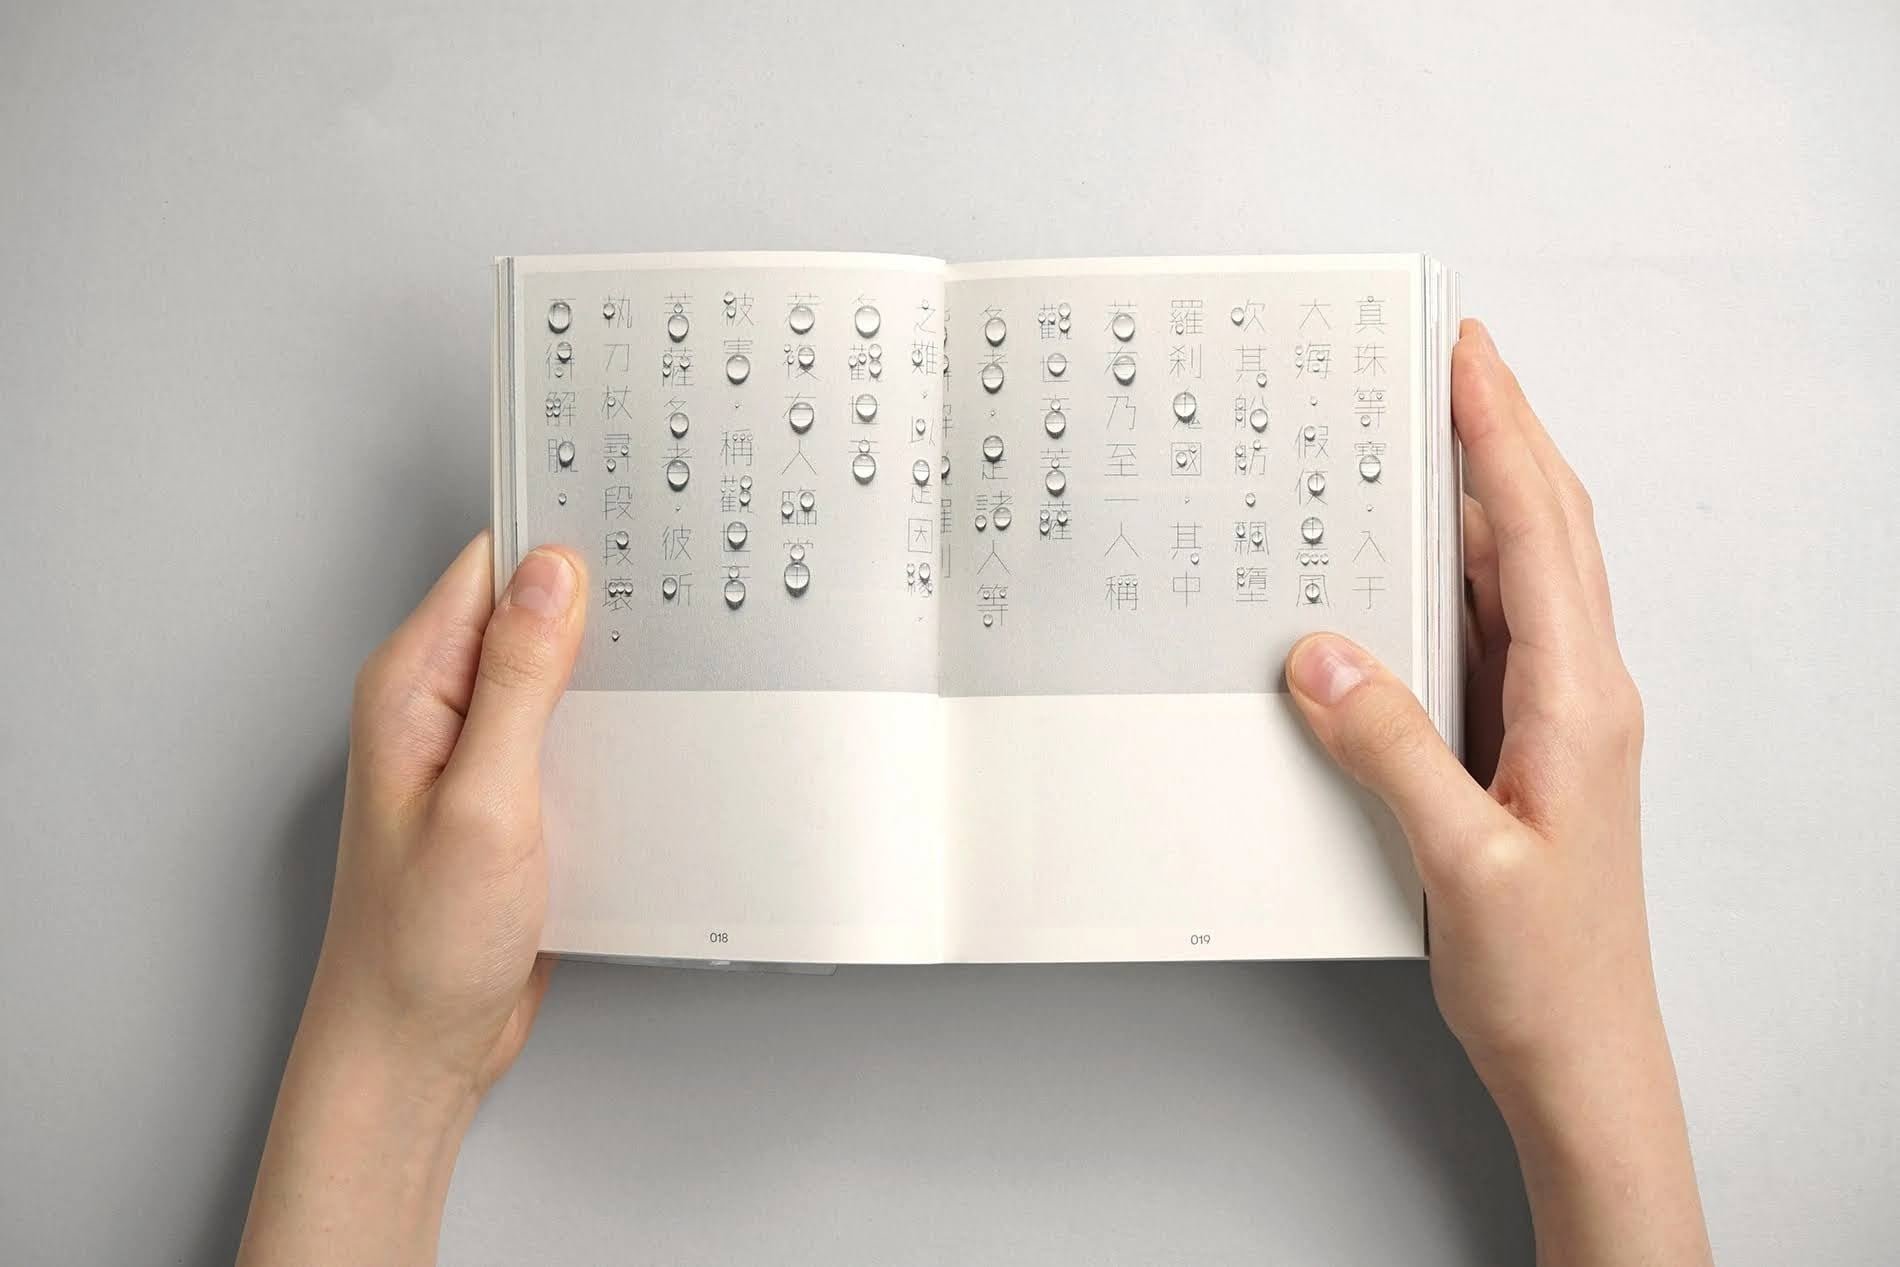 真珠等寶。入于
大海。假使黑風
吹其船舫。飄墮
羅剎鬼國。其中
若有乃至一人稱
觀世音菩薩
名者。是諸人等
019
之難。以是因緣。
名觀世音
若復有人臨當
被害。稱觀世音
菩薩名者。彼所
執刀杖尋段段壞。
而得解脫。
018